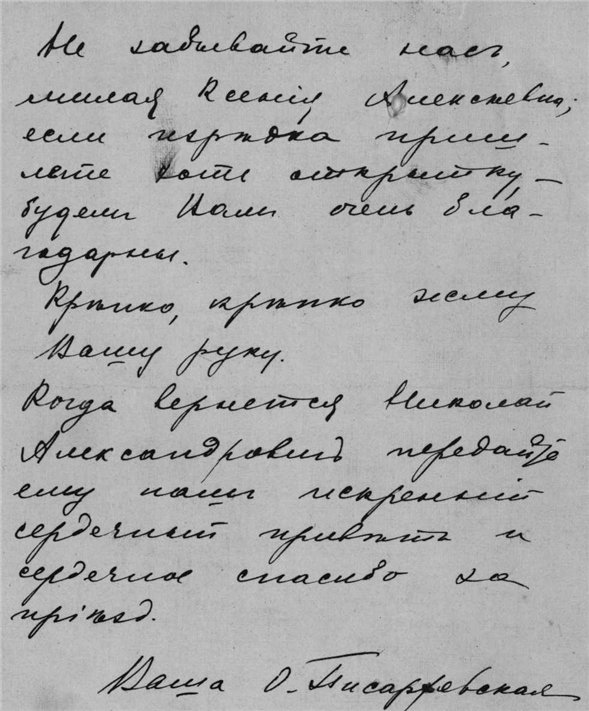 Не забывайте насъ,
милая Ксенія Алексѣевна;
если изрѣдка приш-
лете хотя открытку,—
будемъ Вамъ очень бла-
годарны.
Крѣпко, крѣпко жму
Вашу руку.
Когда вернется Николай
Александровичъ передайте
ему нашъ искренній
сердечный привѣтъ и
сердечное спасибо за
пріѣзд.
Ваша О. Писаржевская